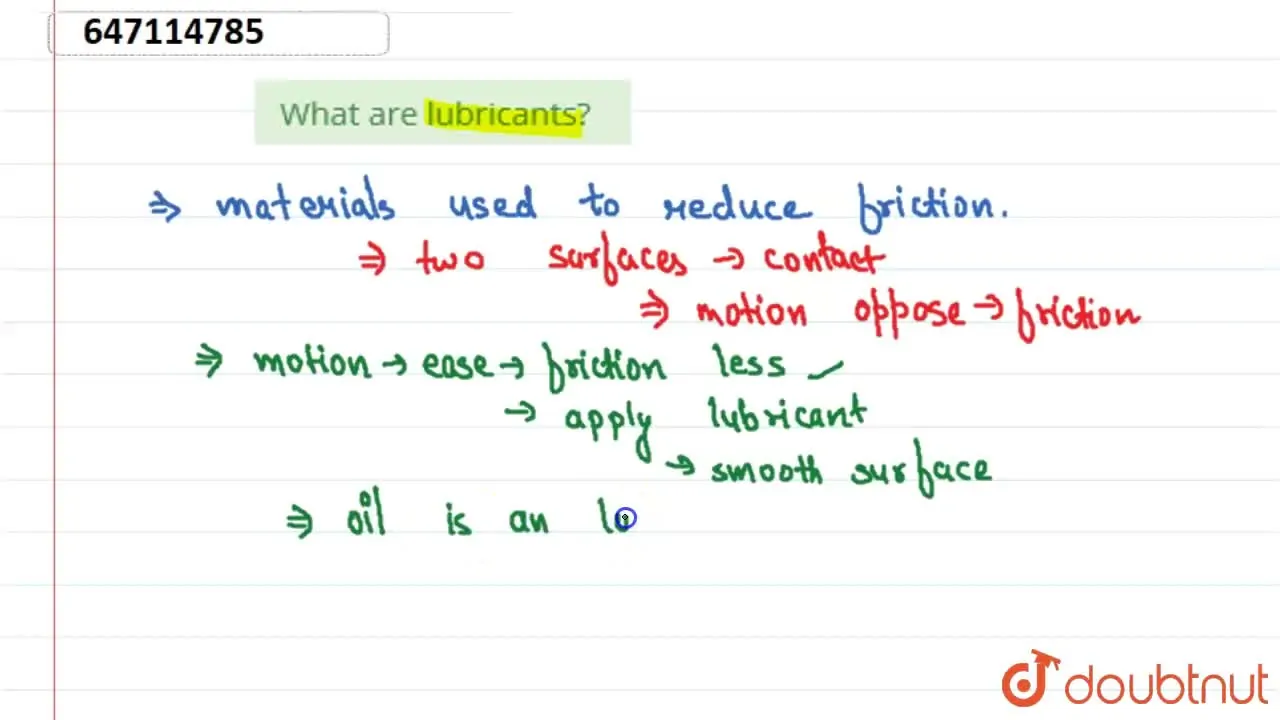 647114785
What are lubricants?
⇒ materials used to reduce friction.
⇒ two surfaces → contact
⇒ motion oppose → friction
⇒ motion → ease → friction less ✓
→ apply lubricant
→ smooth surface
⇒ oil is an lu
doubtnut